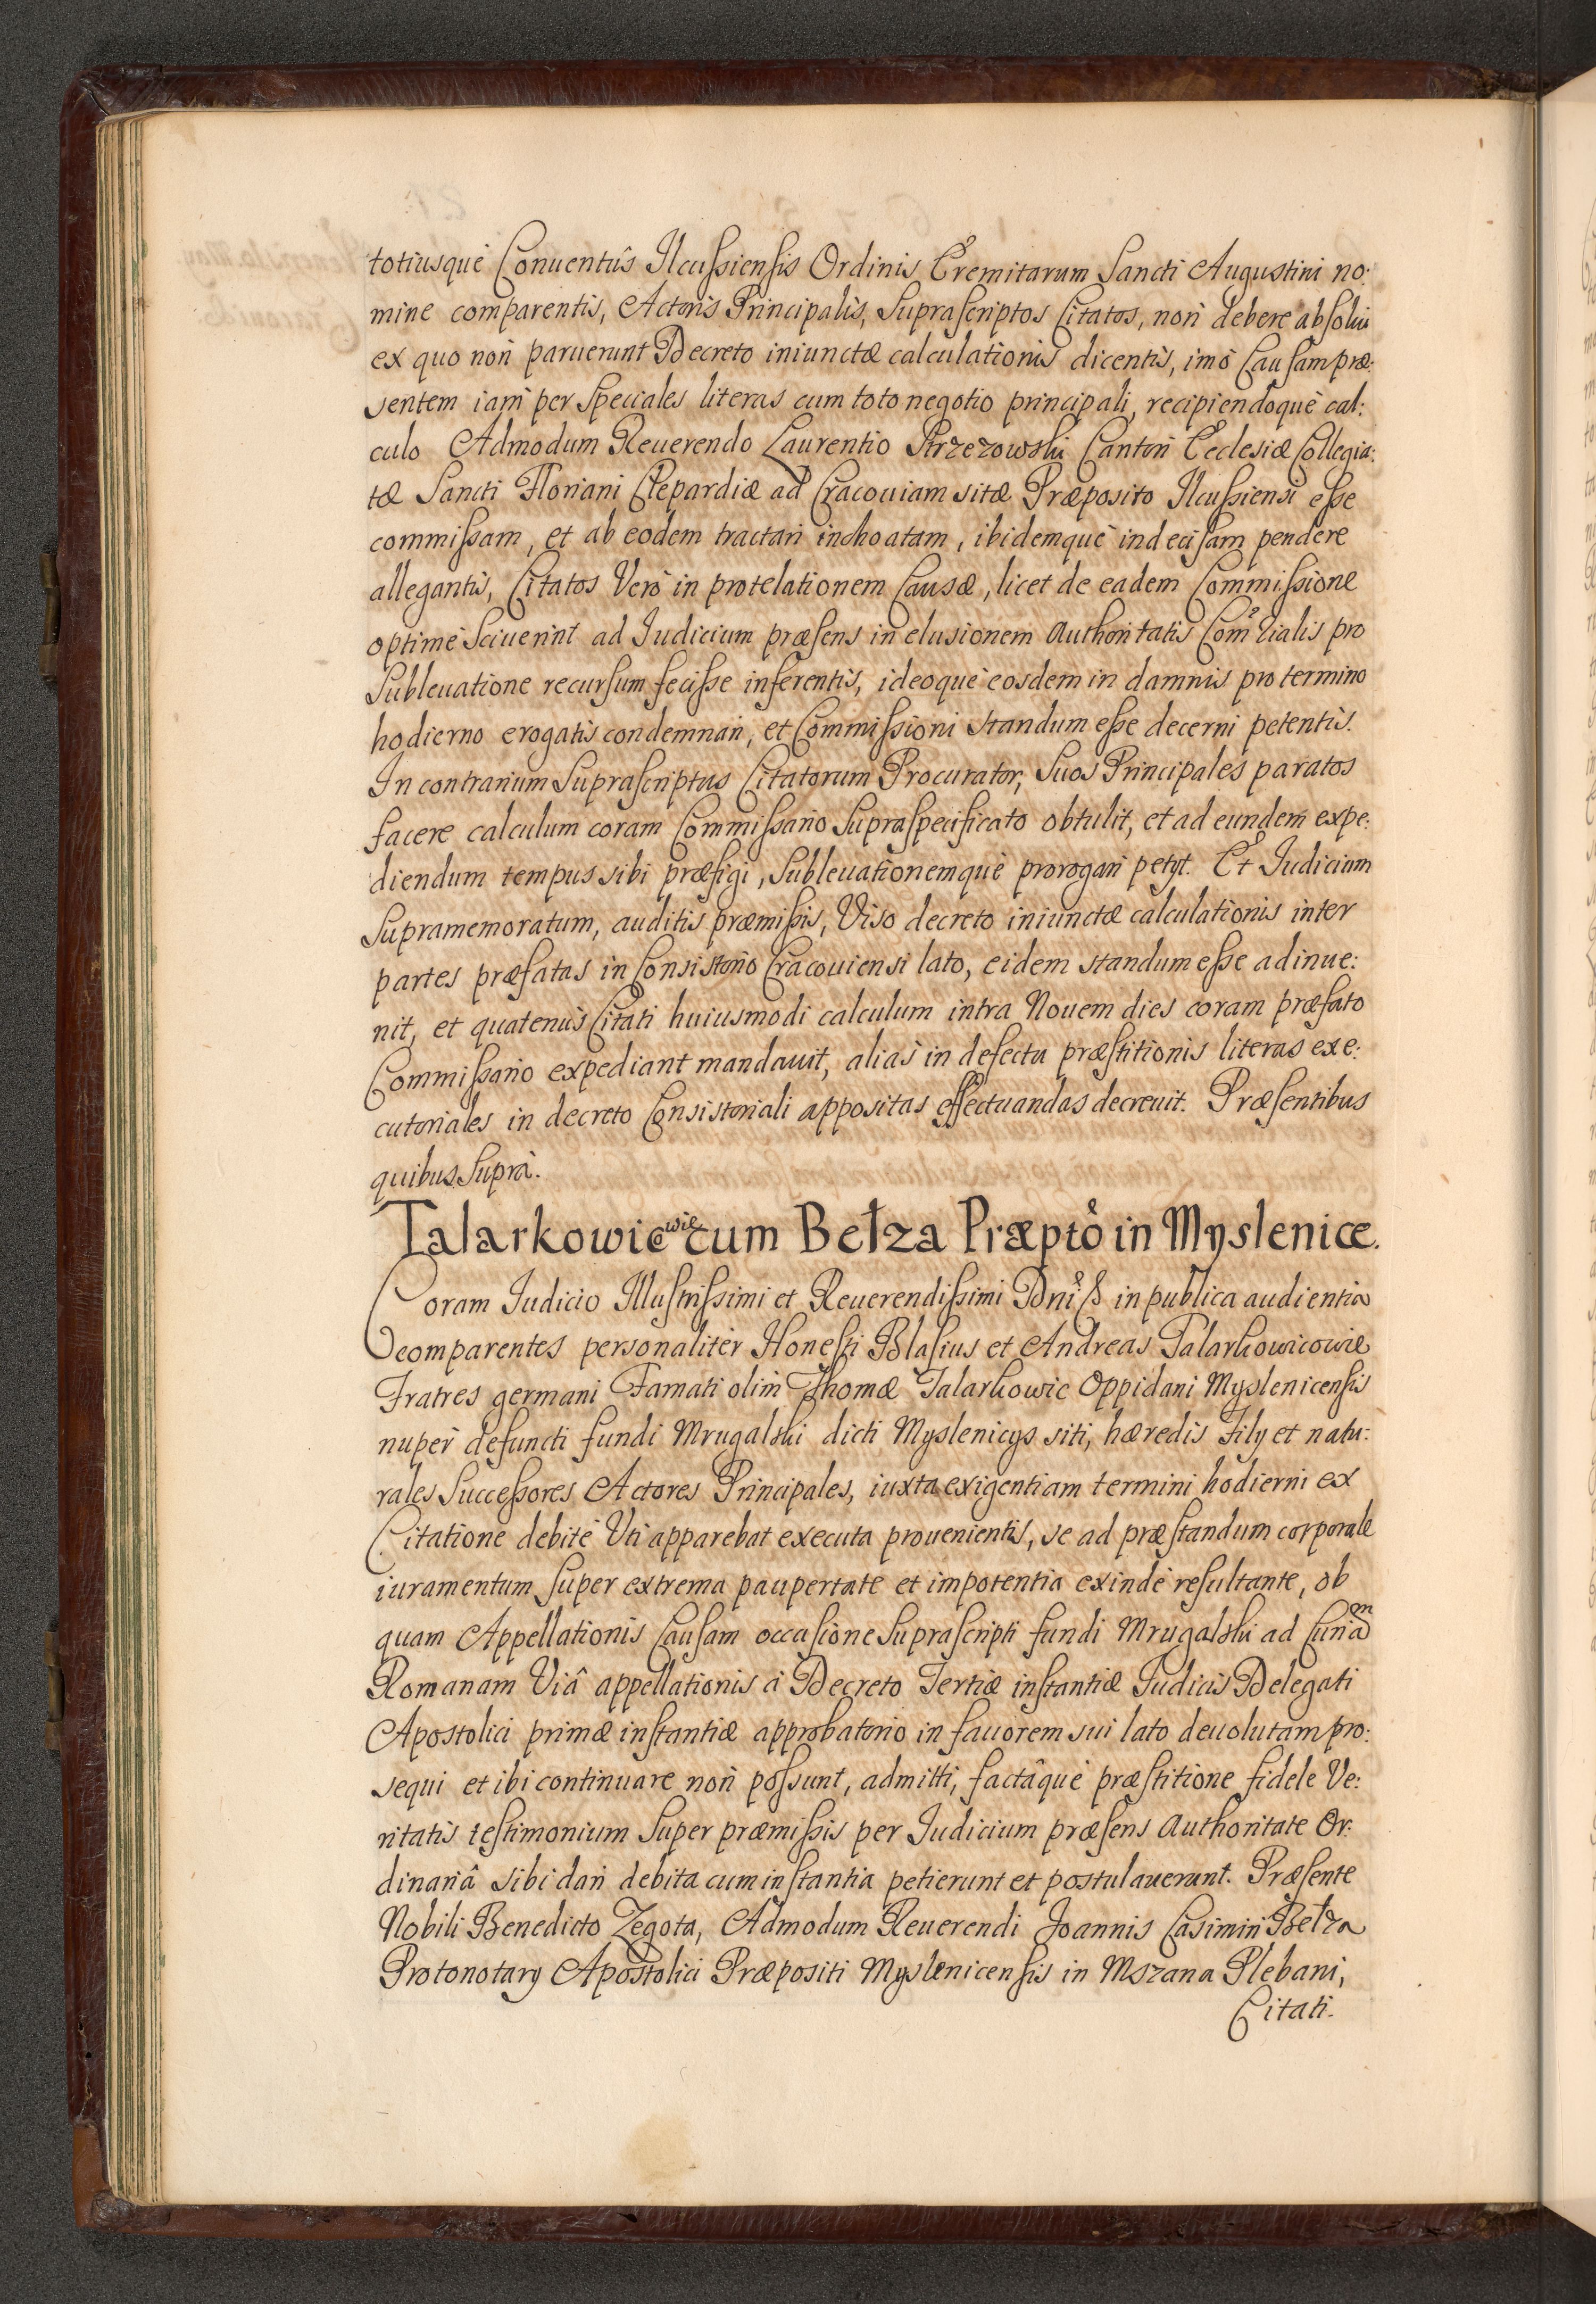 totiusque Conuentûs Ilcussiensis Ordinis Eremitarum Sancti Augustini no:
mine comparentis, Actoris Principalis, Suprascriptos Citatos, non debere absolui
ex quo non paruerunt Decreto iniunctæ calculationis dicentis, imò Causam præ:
sentem iam per Speciales literas cum toto negotio principali, recipiendoque cal:
culo Admodum Reuerendo Laurentio Strzezowski Cantori Ecclesiæ Collegia:
tæ Sancti Floriani Clepardiæ ad Cracouiam sitæ Præposito Ilcussiensi esse
commissam, et ab eodem tractari inchoatam, ibidemque indecisam pendere
allegantis, Citatos Verò in protelationem Causæ, licet de eadem Commissione
optimè Sciuerint ad Iudicium præsens in elusionem Authoritatis Com̃rialis pro
Subleuatione recursum fecisse inferentis, ideoque eosdem in damnis pro termino
hodierno erogatis condemnari, et Commissioni standum esse decerni petentis.
In contrarium Suprascriptus Citatorum Procurator, Suos Principales paratos
facere calculum coram Commissario Supraspecificato obtulit, et ad eundem expe:
diendum tempus sibi præfigi, Subleuationemque prorogari petijt. Et Iudicium
Supramemoratum, auditis præmissis, Viso decreto iniunctæ calculationis inter
partes præfatas in Consistorio Cracouiensi lato, eidem standum esse adinue:
nit, et quatenus Citati huiusmodi calculum intra Nouem dies coram præfato
Commissario expediant mandauit, alias in defectu præstitionis literas exe:
cutoriales in decreto Consistoriali appositas effectuandas decreuit. Præsentibus
quibus Suprà.
Talarkowicowie cum Bełza Præpto in Myslenice.
Coram Iudicio Illustrissimi et Reuerendissimi Dni Epi in publica audientia
comparentes personalitèr Honesti Blasius et Andreas Talarkowicowie
Fratres germani Famati olim Thomæ Talarkowic Oppidani Myslenicensis
nupèr defuncti fundi Mrugalski dicti Myslenicys siti, hæredis Filij et natu:
rales Successores Actores Principales, iuxta exigentiam termini hodierni ex
Citatione debitè Uti apparebat executa prouenientis, se ad præstandum corporale
iuramentum Super extrema paupertate et impotentia exindè resultante, ob
quam Appellationis Causam occasione Suprascripti fundi Mrugalski ad Curiam
Romanam Viâ appellationis à Decreto Tertiæ instantiæ Iudicis Delegati
Apostolici primæ instantiæ approbatorio in fauorem sui lato deuolutam pro:
sequi et ibi continuare non possunt, admitti, factâque præstitione fidele Ve:
ritatis testimonium Super præmissis per Iudicium præsens Authoritate Or:
dinariâ sibi dari debita cum instantia petierunt et postulauerunt. Præsente
Nobili Benedicto Zegota, Admodum Reuerendi Joannis Casimiri Bełza
Protonotary Apostolici Præpositi Myslenicensis in Mszana Plebani,
Citati.